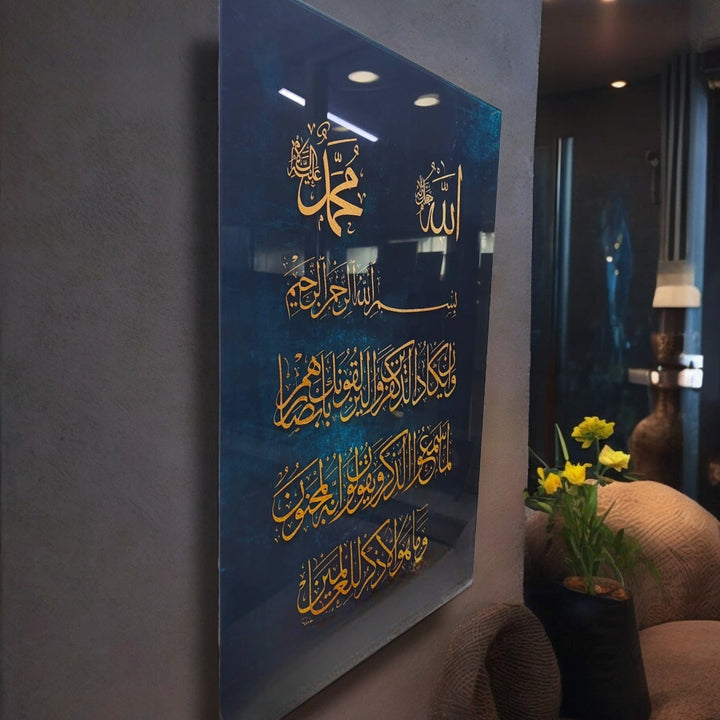 الله جل جلاله محمد عليه السلام
بسم الله الرحمن الرحيم
وإن يكاد الذين كفروا ليزلقونك بأبصارهم
لما سمعوا الذكر ويقولون إنه لمجنون
وما هو إلا ذكر للعالمين